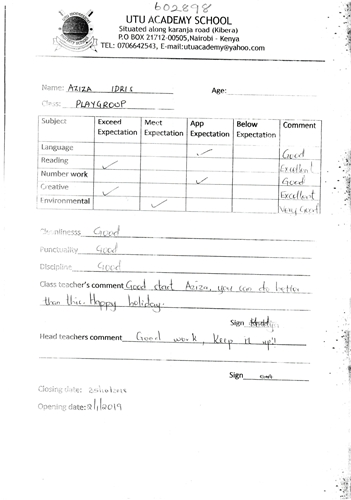 602898
UTU ACADEMY SCHOOL
Situated along karanja road (Kibera)
P.O BOX 21712-00505,Nairobi - Kenya
TEL: 0706642543, E-mail:utuacademy@yahoo.com
Name: AZIZA IDRIS Age:
Class: PLAYGROUP
Subject Exceed Expectation Meet Expectation App Expectation Below Expectation Comment
Language ✓ Good
Reading ✓ Excellent
Number work ✓ Good
Creative ✓ Excellent
Environmental ✓ Very Good
Good
Punctuality Good
Discipline Good
Class teacher's comment Good start Aziza, you can do better
than this. Happy holiday.
Sign
Head teachers comment Good work, keep it up!
Sign
Closing date:
Opening date: 2/1/2019